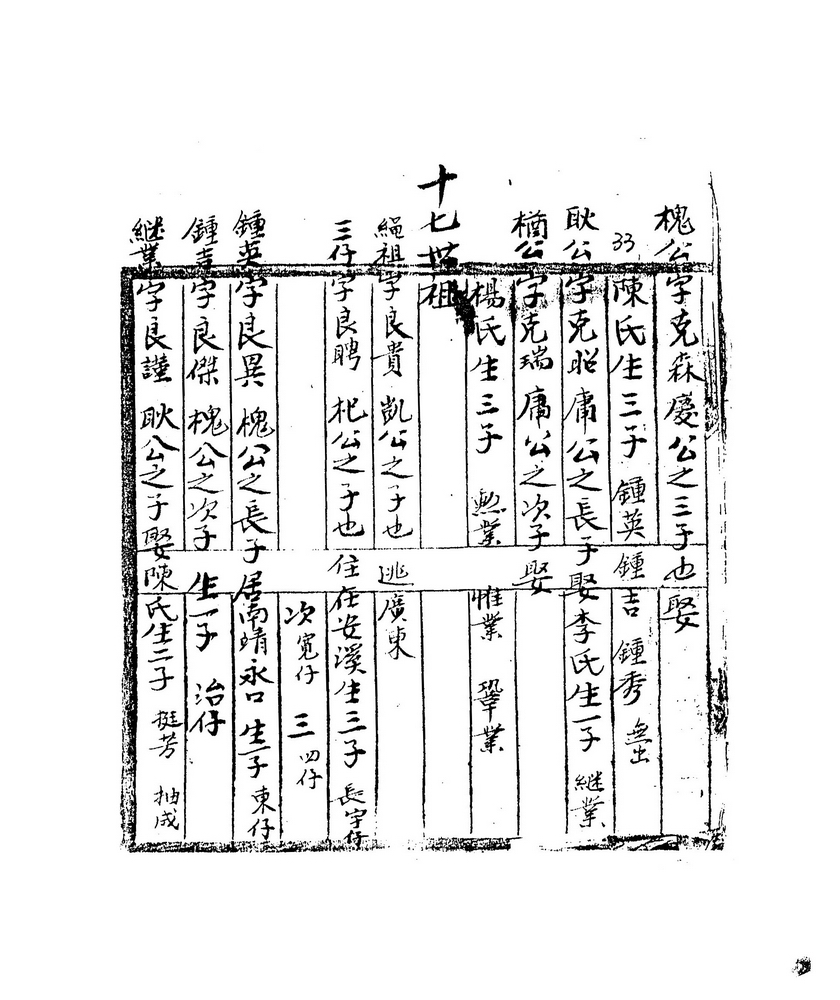 槐公字克森慶公之三子也娶
33
陳氏生三子 鍾英 鍾吉 鍾秀 無出
耿公字克昭庸公之長子娶李氏生一子 継業
楢公字克瑞庸公之次子娶
楊氏生三子 懃業 惟業 鞏業
十七世祖
繩祖字良貴 凱公之子也 逃廣東
三仔字良聘 杞公之子也 住在安溪生三子 長宇仔
次寛仔 三四仔
鍾英字良異 槐公之長子 居南靖永口 生一子 東仔
鍾吉字良傑 槐公之次子 生一子 治仔
継業字良謹 耿公之子娶陳氏生二子 挺芳 抽成